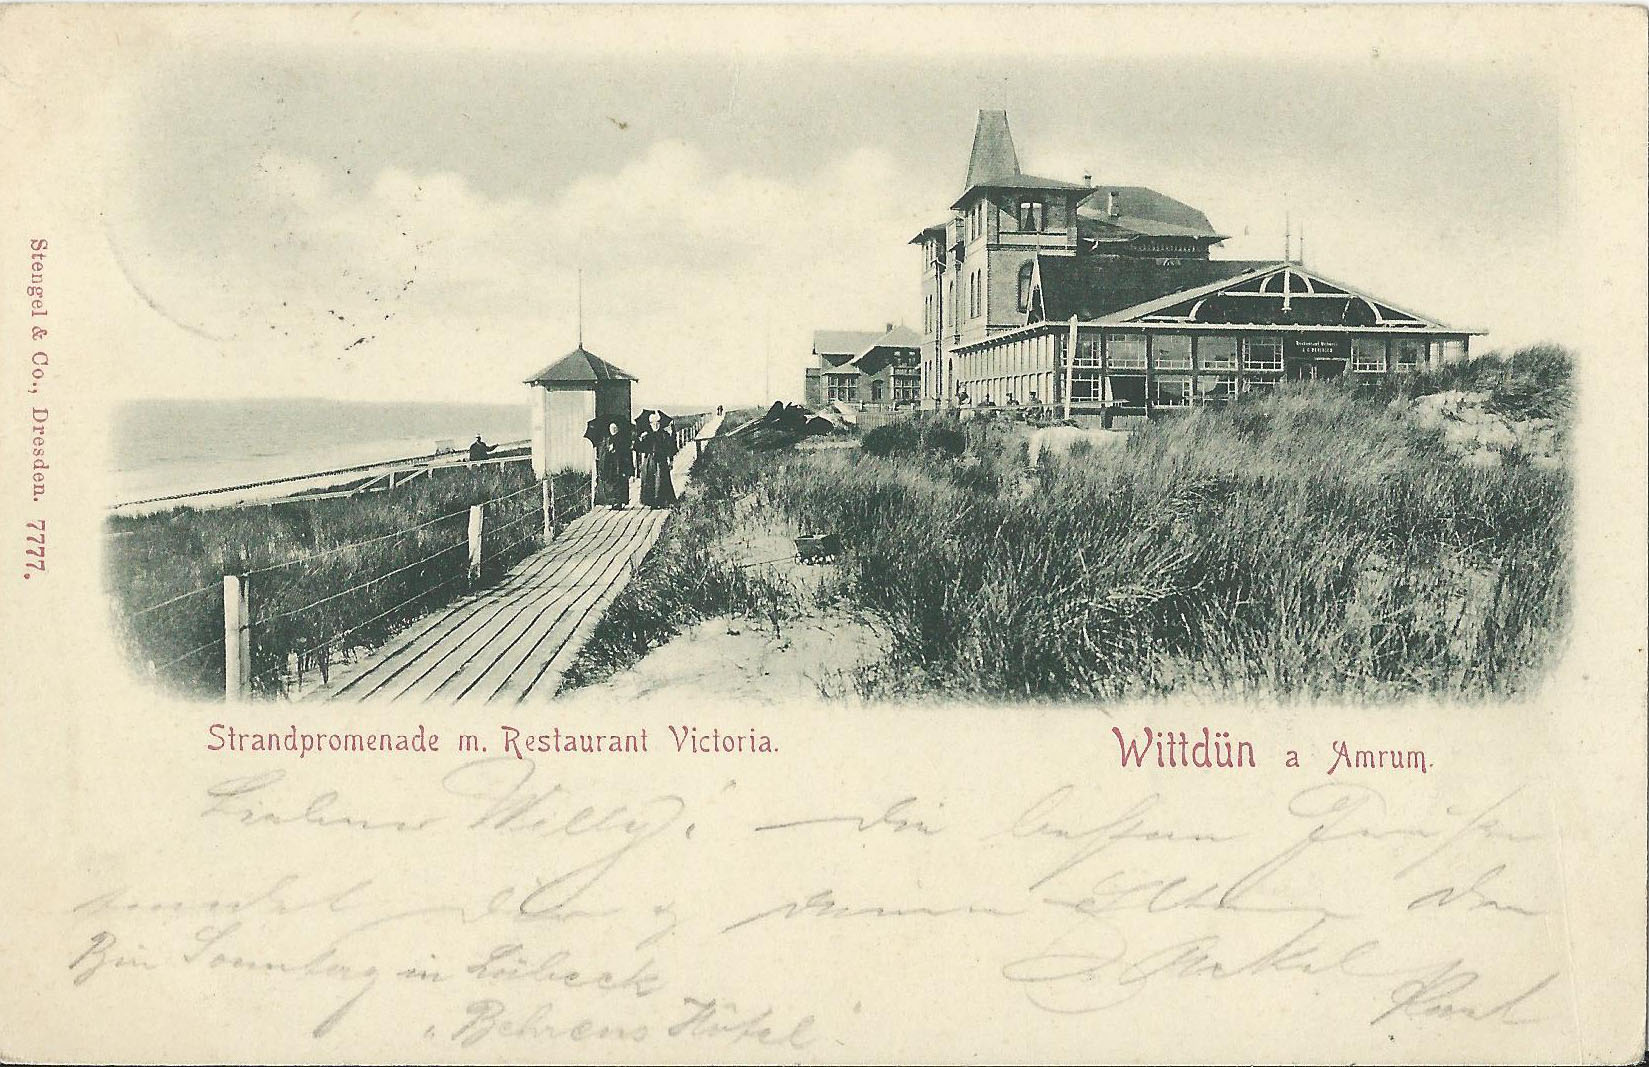 Stengel & Co., Dresden. 7777.
Strandpromenade m. Restaurant Victoria.
Wittdün a Amrum.
Lieber Willy! die besten Grüße
sendet Dir u. deinen Eltern dein
Onkel
Bin Sonntag in Lübeck
Behrens Hôtel